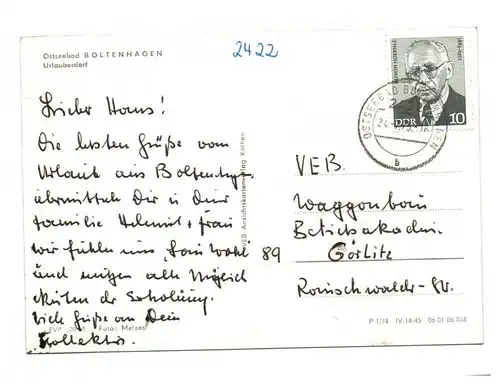 Ostseebad BOLTENHAGEN
Urlauberdorf
2422
EDWIN HOERNLE
1883-1952
DDR 10
OSTSEEBAD BOLTENHAGEN
b
Lieber Hans!
Die besten Grüße vom
Urlaub aus Boltenhagen
übermittelt Dir u Deiner
Familie Helmut + Frau
wir fühlen uns "Sau Wohl"
und nutzen alle Möglich
keiten der Erholung.
Viele Grüße an Dein
Kollektiv.
VEB Ansichtskartenverlag Köthen
VEB.
Waggonbau
Betriebsakadm.
89 Görlitz
EVP -,20 M Foto: Melzer
P 1/74 IV-14-45 06 01 06 058